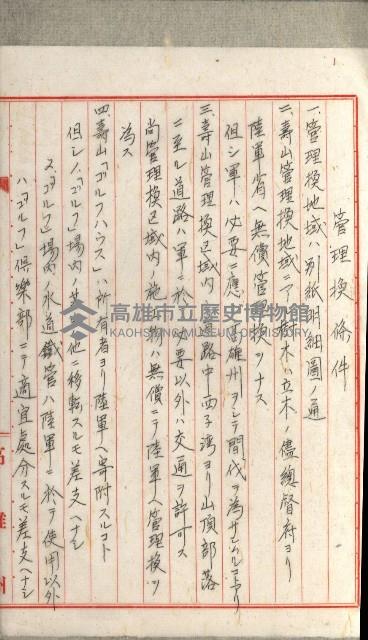 管理換條件
一、管理換地域ハ別紙明細圖ノ通
二、壽山管理換地域ニアル樹木ハ立木ノ儘總督府ヨリ
陸軍省ヘ無償管理換ヲナス
但シ軍ハ必要ニ應シ高雄州ヲシテ間伐ヲ為サシムルコトアリ
三、壽山管理換區域内道路中西子湾ヨリ山頂部落
ニ至ル道路ハ軍ニ於テ必要以外ハ交通ヲ許可ス
尚管理換區域内ノ施設物ハ無償ニテ陸軍ヘ管理換ヲ
為ス
四、壽山「ゴルフハウス」ハ所有者ヨリ陸軍ヘ寄附スルコト
但シ「ゴルフ」場内ノ芝ハ他ニ移転スルモ差支ヘナシ
又「ゴルフ」場内ノ水道鐵管ハ陸軍ニ於テ使用以外
ハ「ゴルフ」倶樂部ニテ適宜處分スルモ差支ヘナシ
高雄州
高雄市立歷史博物館
KAOHSIUNG MUSEUM OF HISTORY